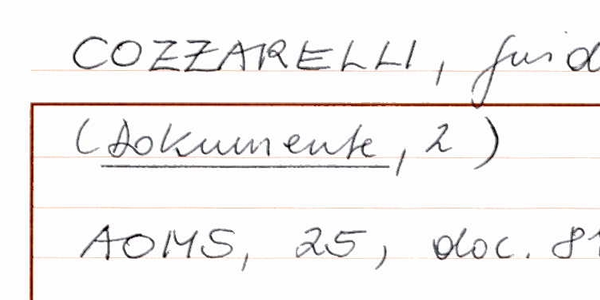 COZZARELLI, Guid
(Dokumente, 2)
AOMS, 25, doc. 81